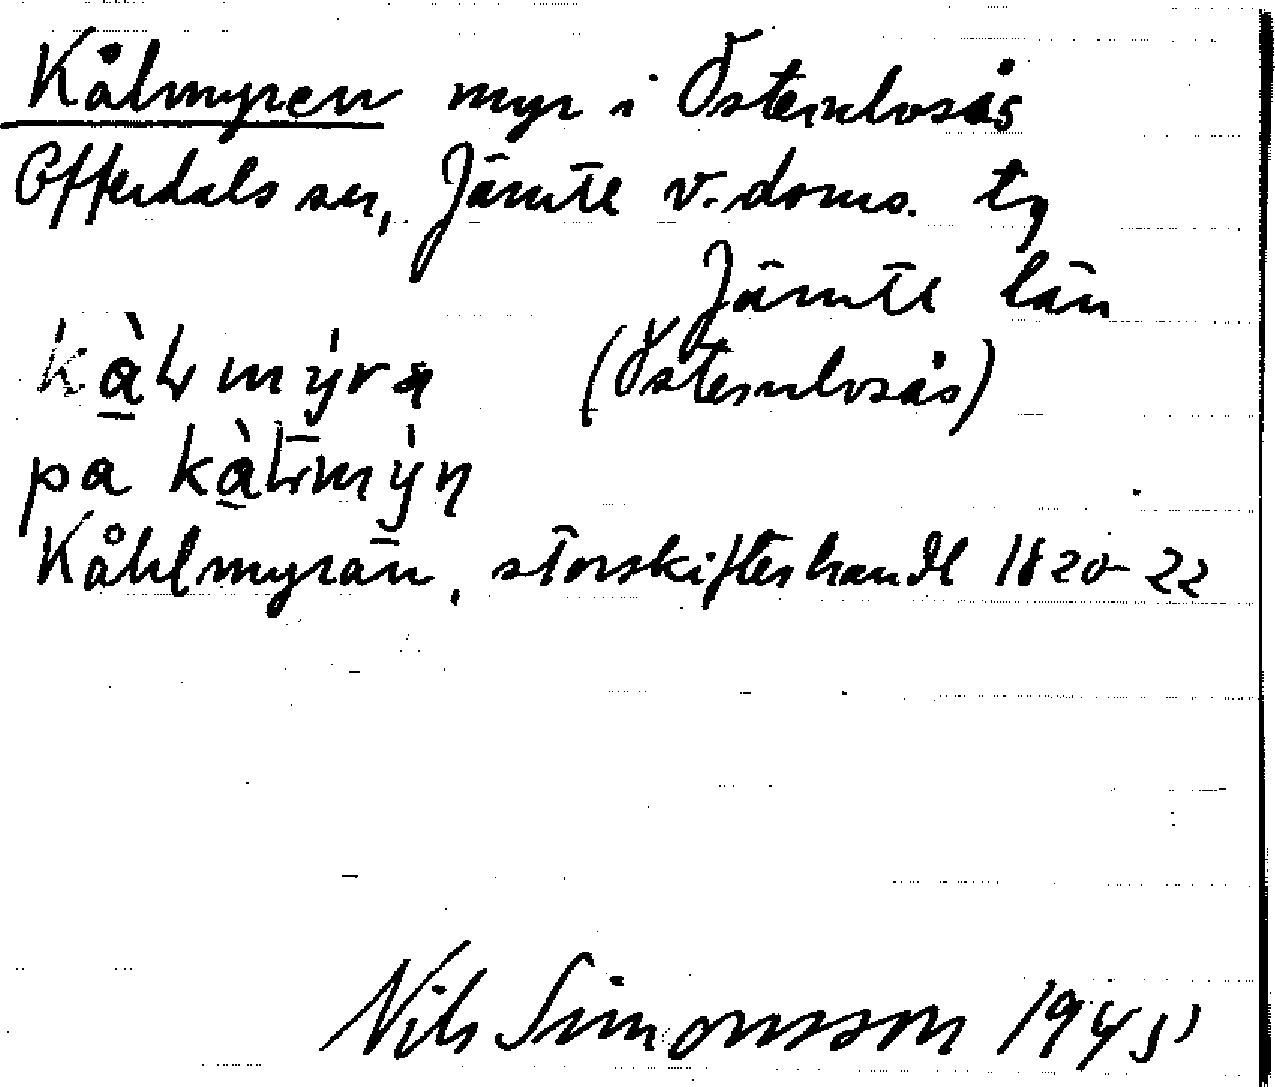 Kålmyren myr i Östernlosås
Offerdals sn, Jämtl v. doms. tg
Jämtl län
kàlmýra (Östernlosås)
pa kàlmýn
Kåhlmyran, storskifteshandl 1820-22
Nils Simonsson 1945